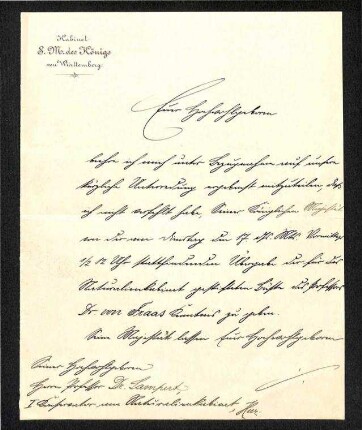 Kabinet
S. M. des Königs
von Württemberg.
Euer Hochwohlgeboren
beehre ich mich unter Bezugnahme auf unsere
kürzliche Unterredung ergebenst mitzuteilen, daß
ich nicht verfehlt habe, Seiner Königlichen Majestät
von der am Dienstag den 17. ds. Mts. Vormittags
½ 12 Uhr stattfindenden Übergabe der für das
Naturalienkabinet gestifteten Büste des Professors
Dr von Fraas Kenntnis zu geben.
Seine Majestät lassen Euer Hochwohlgeboren
Seiner Hochwohlgeboren
Herrn Professor Dr. Lampert,
I Inspector am Naturalienkabinet, Hier.